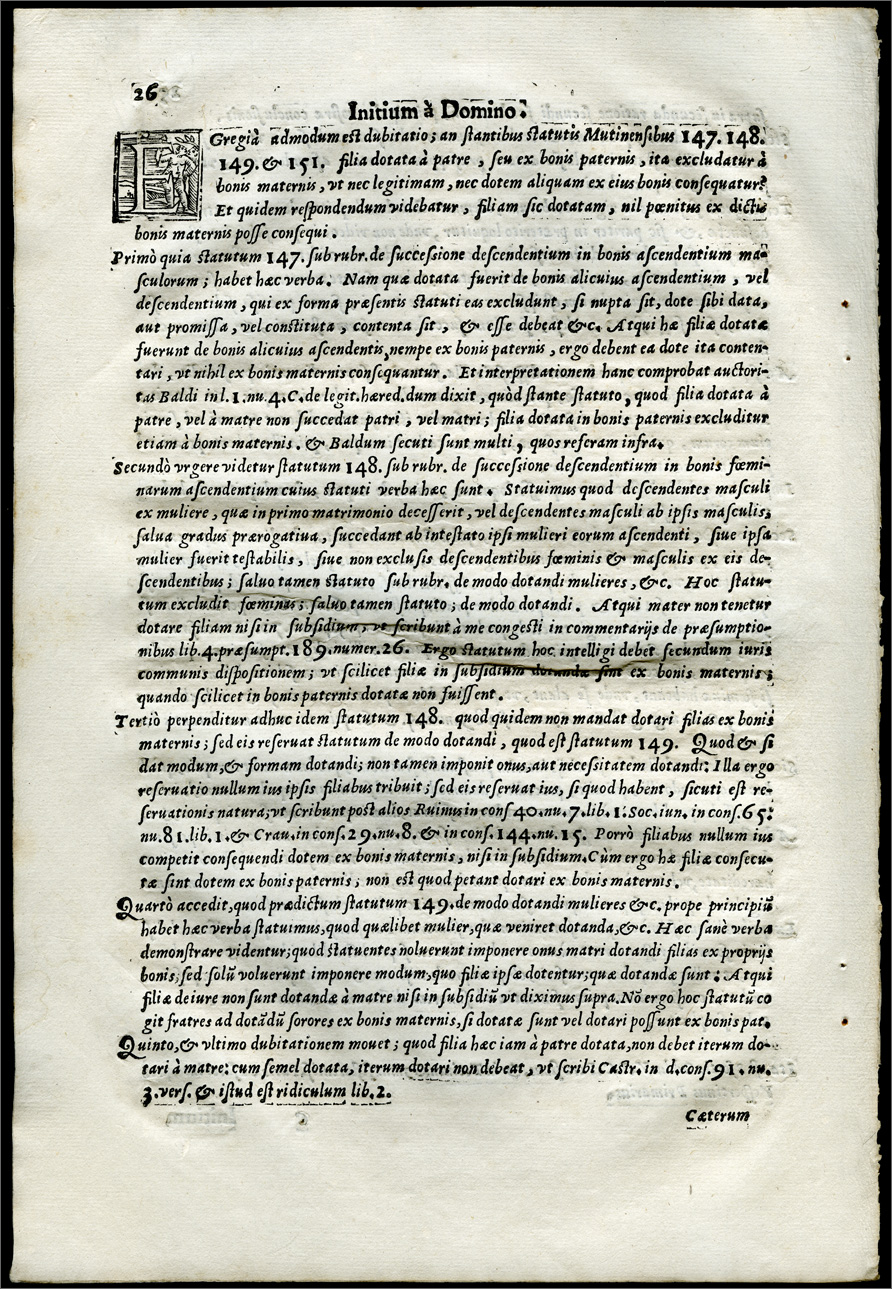 26
Initium à Domino.
EGregià admodum est dubitatio; an stantibus statutis Mutinensibus 147. 148.
149. & 151. filia dotata à patre, seu ex bonis paternis, ita excludatur à
bonis maternis, vt nec legitimam, nec dotem aliquam ex eius bonis consequatur?
Et quidem respondendum videbatur, filiam sic dotatam, nil pœnitus ex dictis
bonis maternis posse consequi.
Primò quia statutum 147. sub rubr. de successione descendentium in bonis ascendentium ma-
sculorum; habet hæc verba. Nam quæ dotata fuerit de bonis alicuius ascendentium, vel
descendentium, qui ex forma præsentis statuti eas excludunt, si nupta sit, dote sibi data,
aut promissa, vel constituta, contenta sit, & esse debeat &c. Atqui hæ filiæ dotatæ
fuerunt de bonis alicuius ascendentis, nempe ex bonis paternis, ergo debent ea dote ita conten-
tari, vt nihil ex bonis maternis consequantur. Et interpretationem hanc comprobat auctori-
tas Baldi in l. 1. nu. 4. C. de legit. hæred. dum dixit, quòd stante statuto, quod filia dotata à
patre, vel à matre non succedat patri, vel matri; filia dotata in bonis paternis excluditur
etiam à bonis maternis. & Baldum secuti sunt multi, quos referam infra.
Secundò vrgere videtur statutum 148. sub rubr. de successione descendentium in bonis fœmi-
narum ascendentium cuius statuti verba hæc sunt. Statuimus quod descendentes masculi
ex muliere, quæ in primo matrimonio decesserit, vel descendentes masculi ab ipsis masculis;
salua gradus prærogatiua, succedant ab intestato ipsi mulieri eorum ascendenti, siue ipsa
mulier fuerit testabilis, siue non exclusis descendentibus fœminis & masculis ex eis de-
scendentibus; saluo tamen statuto sub rubr. de modo dotandi mulieres, &c. Hoc statu-
tum excludit fœminas; saluo tamen statuto; de modo dotandi. Atqui mater non tenetur
dotare filiam nisi in subsidium, vt scribunt à me congesti in commentarijs de præsumptio-
nibus lib. 4. præsumpt. 189. numer. 26. Ergo statutum hoc intelligi debet secundum iuris
communis dispositionem; vt scilicet filiæ in subsidium dotandæ sint ex bonis maternis;
quando scilicet in bonis paternis dotatæ non fuissent.
Tertiò perpenditur adhuc idem statutum 148. quod quidem non mandat dotari filias ex bonis
maternis; sed eis reseruat statutum de modo dotandi, quod est statutum 149. Quod & si
dat modum, & formam dotandi; non tamen imponit onus, aut necessitatem dotandi: Illa ergo
reseruatio nullum ius ipsis filiabus tribuit; sed eis reseruat ius, si quod habent, sicuti est re-
seruationis natura; vt scribunt post alios Ruinus in cons 40. nu. 7. lib. 1. Soc. iun. in cons. 65.
nu. 81. lib. 1. & Crau. in cons. 29. nu. 8. & in cons. 144. nu. 15. Porrò filiabus nullum ius
competit consequendi dotem ex bonis maternis, nisi in subsidium. Cùm ergo hæ filiæ consecu-
tæ sint dotem ex bonis paternis; non est quod petant dotari ex bonis maternis.
Quartò accedit, quod prædictum statutum 149. de modo dotandi mulieres &c. prope principiū
habet hæc verba statuimus, quod quælibet mulier, quæ veniret dotanda, &c. Hæc sanè verba
demonstrare videntur; quod statuentes noluerunt imponere onus matri dotandi filias ex proprijs
bonis, sed solū voluerunt imponere modum, quo filiæ ipsæ dotentur; quæ dotandæ sunt: Atqui
filiæ de iure non sunt dotandæ à matre nisi in subsidiū vt diximus supra. Nō ergo hoc statutū co
git fratres ad dotādū sorores ex bonis maternis, si dotatæ sunt vel dotari possunt ex bonis pat.
Quinto, & vltimo dubitationem mouet; quod filia hæc iam à patre dotata, non debet iterum do-
tari à matre: cum semel dotata, iterum dotari non debeat, vt scribi Castr. in d. cons. 91. nu.
3. vers. & istud est ridiculum lib. 2.
Cæterum